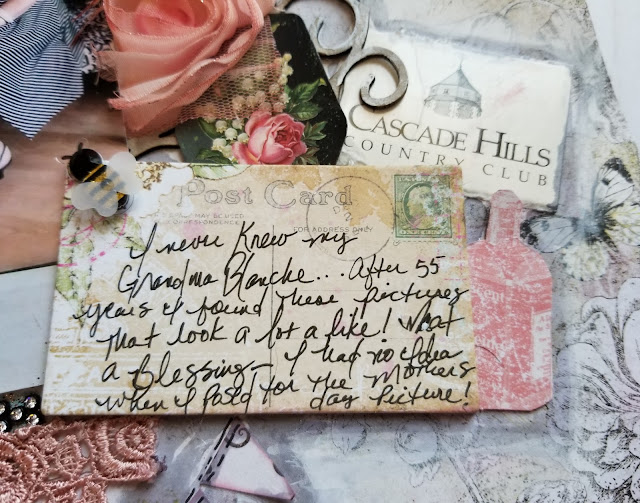 CASCADE HILLS
COUNTRY CLUB
Post Card
MAY BE USED
FOR ADDRESS ONLY
I never Knew my
Grandma Blanche... After 55
years I found these pictures
that look a lot a like! What
a blessing - I had no idea
when I posed for the Mothers
day Picture!